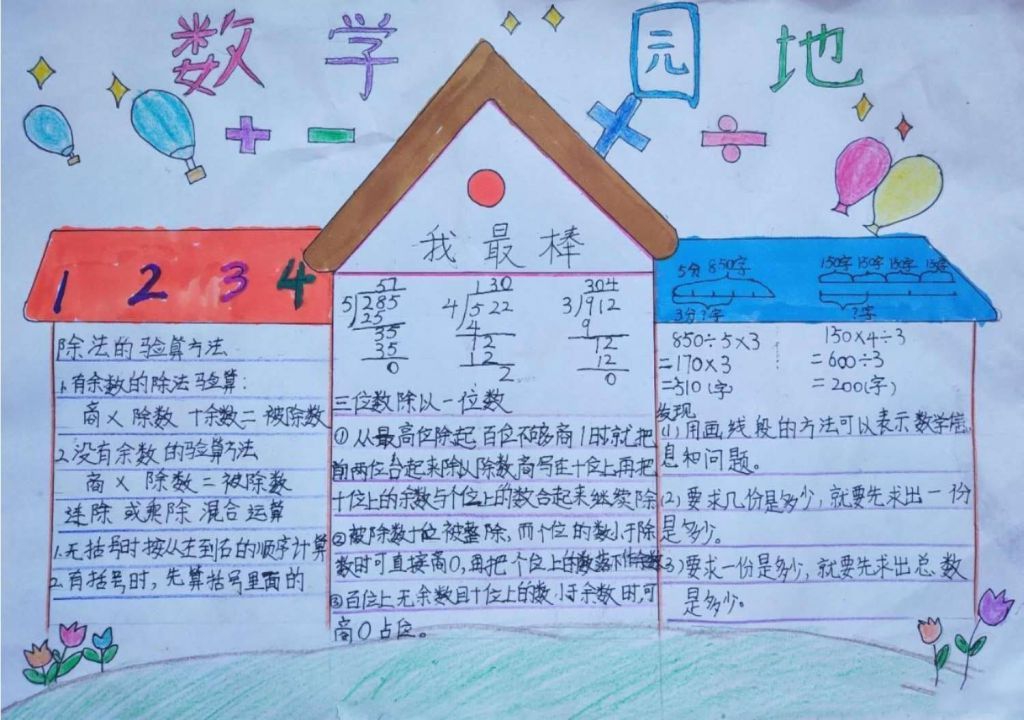 数学园地
+ - × ÷
我最棒
1 2 3 4
除法的验算方法
1.有余数的除法验算:
商×除数+余数=被除数
2.没有余数的验算方法
商×除数=被除数
连除或乘除混合运算
1.无括号时按从左到右的顺序计算
2.有括号时,先算括号里面的
57
5 285
25
35
35
0
130
4 522
4
12
12
2
304
3 912
9
12
12
0
三位数除以一位数
①从最高位除起百位不够商1时就把
前两位合起来除以除数商写在十位上再把
十位上的余数与个位上的数合起来继续除
②被除数十位被整除,而个位的数小于除
数时可直接商0,再把个位上的数落下作余数
③百位上无余数且十位上的数小于余数时,可
商0占位。
5分850字
3分?字
150字 150字 150字 150字
?字
850÷5×3
=170×3
=510(字)
150×4÷3
=600÷3
=200(字)
发现
(1)用画线段的方法可以表示数学信
息和问题。
(2)要求几份是多少,就要先求出一份
是多少。
(3)要求一份是多少,就要先求出总数
是多少。